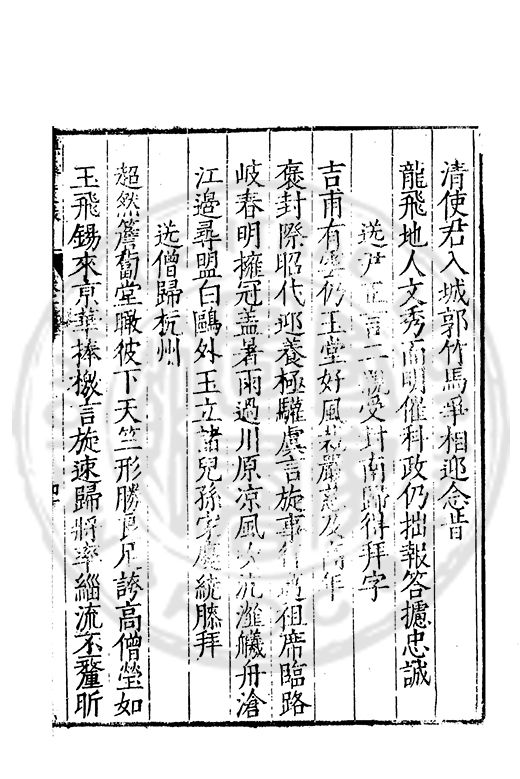 清使君入城郭竹馬爭相迎念昔
龍飛地人文秀而明催科政仍拙報答攄忠誠
送尹 言二親受封南歸得拜字
吉甫有 仍玉堂好風 嚴慈及高年
褒封際昭代迎養極驩虞言旋事 祖席臨路
岐春明擁冠蓋暑雨過川原涼風 流 艤舟滄
江邊尋盟白鷗外玉立諸兒孫 慶繞膝拜
送僧歸杭州
超然 堂瞰彼下天竺形勝良足誇高僧瑩如
玉飛錫來京華捧檄言旋速歸將率緇流丕釐昕